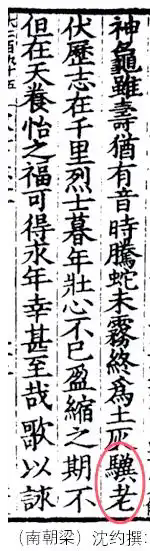 神龜雖壽猶有音時騰蛇未霧終爲土灰驥老
伏歷志在千里烈士暮年壯心不已盈縮之期不
但在天養怡之福可得永年幸甚至哉歌以詠
（南朝梁）沈约撰: